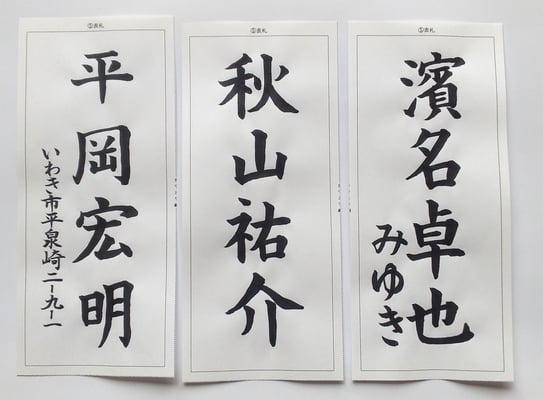 ⑤表札
濱名卓也
みゆき
⑤表札
秋山祐介
⑤表札
平岡宏明
いわき市平泉崎二-九-一